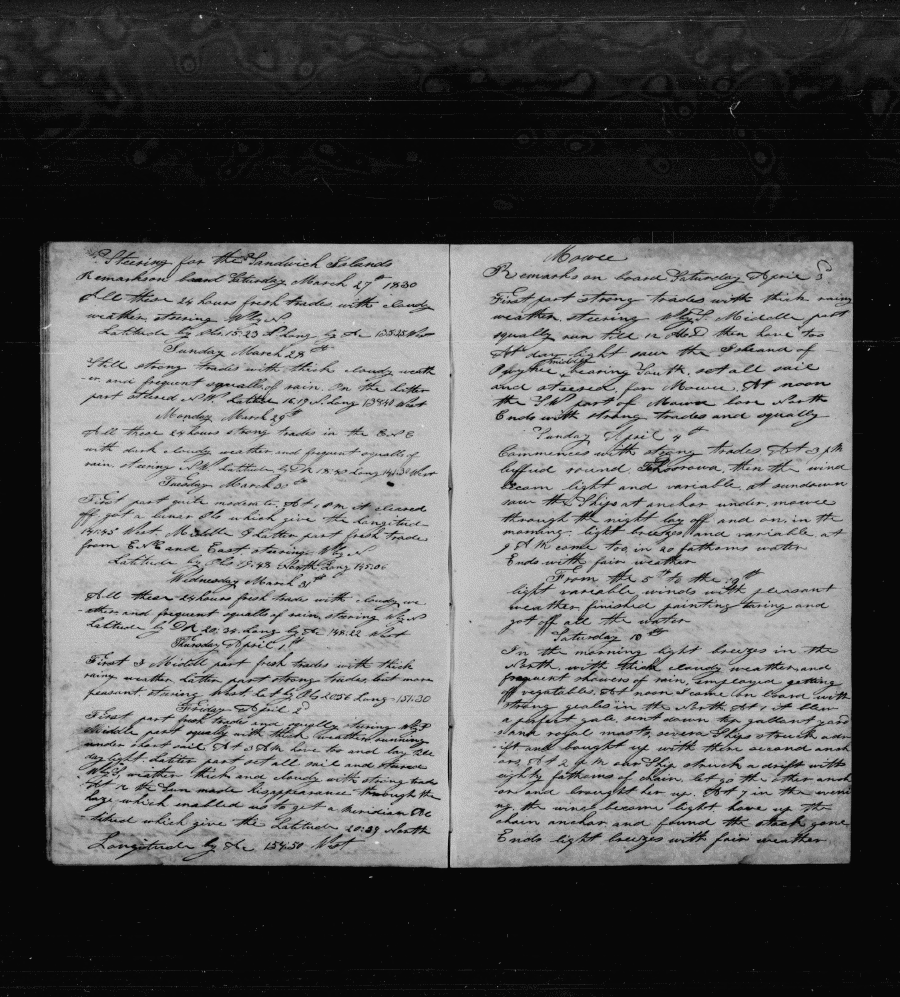 Steering for the Sandwich Islands
Remarks on board Saturday March 27th 1830
All these 24 hours fresh trades with cloudy
weather steering W by N
Latitude by Obs 15.23 N Long by
Sunday March 28th
Still strong trades with thick cloudy weath
-er and frequent squalls of rain On the latter
part steered N.W. Latitude 16.19 N. Long West
Monday March 29th
All these 24 hours strong trades in the E N E
with dark cloudy weather and frequent squalls of
rain steering N.W. Latitude by DR Long West
Tuesday March 30th
First part quite moderate, At 1 P M it cleared
off got a luner Obs which give the Longitude
West. Middle & Latter part fresh trades
from E N E and East steering W by N
Latitude by Obs North Long 145.06
Wednesday March 31st
All these 24 hours fresh trade with cloudy we
-ather and frequent squalls of rain, steering W by N
Latitude by DR 20.24 Long by 148.22 West
Thursday April 1st
First & Middle part fresh trades with thick
rainy weather Latter part strong trades but more
pleasant steering West Lat by Obs 20.56 Long 151.30
Friday April 2d
First part fresh trades and squally steering
Middle part squally with thick weather running
under short sail At 3 AM hove too and lay till
day light Latter part set all sail and steered
weather thick and cloudy with strong trades
At 12 the Sun made his appearance through the
haze which enabled us to get a Meridian
-titude which give the Latitude 20:39 North
Longitude by 154.50 West
Mowee
Remarks on board Saturday April 3
First part strong trades with thick rainy
weather steering W by S. Middle part
squally run till 12 then hove too
At day light saw the Island of
bearing South, set all sail
and steered for Mowee, At noon
the part of Mowee bore North
Ends with strong trades and squally
Sunday April 4th
Commences with strong trades At 3 P M
luffed round then the wind
became light and variable, at sundown
saw the Ships at anchor under mowee
through the night lay off and on, in the
morning light breezes and variable at
9 A M come too in 20 fathoms water
Ends with fair weather
From the 5th to the
light variable winds with pleasant
weather finished painting taring and
got off all the water
Saturday 10th
In the morning light breezes in the
North with thick cloudy weather and
frequent showers of rain, employed getting
off vegetables. At noon I come on board with
strong geales in the North At 1 it blew
a perfect gale, sent down top gallant yards
and royal masts, severe Ships struck adr
-ift and bought up with there second anch
-ors At 2 P M our Ship struck a drift with
eighty fathoms of chain let go the other anch
-or and brought her up. At 7 in the even
-ing the wind become light hove up the
chain anchor and found the stock gone
Ends light breezes with fair weather